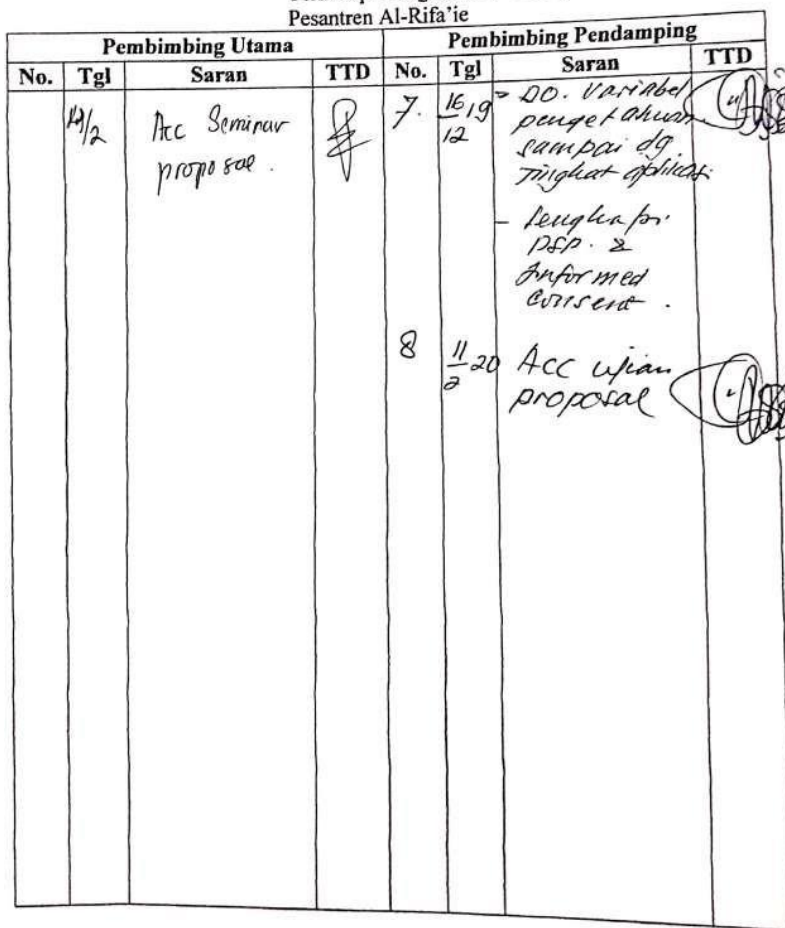 Pesantren Al-Rifa'ie
Pembimbing Utama
Pembimbing Pendamping
No. Tgl Saran TTD
No. Tgl Saran TTD
/2 Acc Seminar
proposal.
7. 16/12 19 - DO. Variabel
pengetahuan
sampai dg.
Tingkat aplikasi
- Lengkapi
PSP. &
Informed
Consent.
8 11/2 20 Acc ujian
proposal